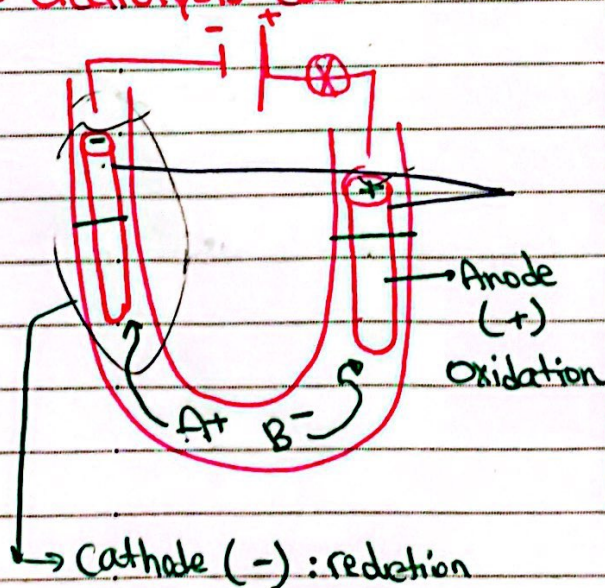 - +
-
+
Anode
(+)
Oxidation
A+ B-
Cathode (-) : reduction